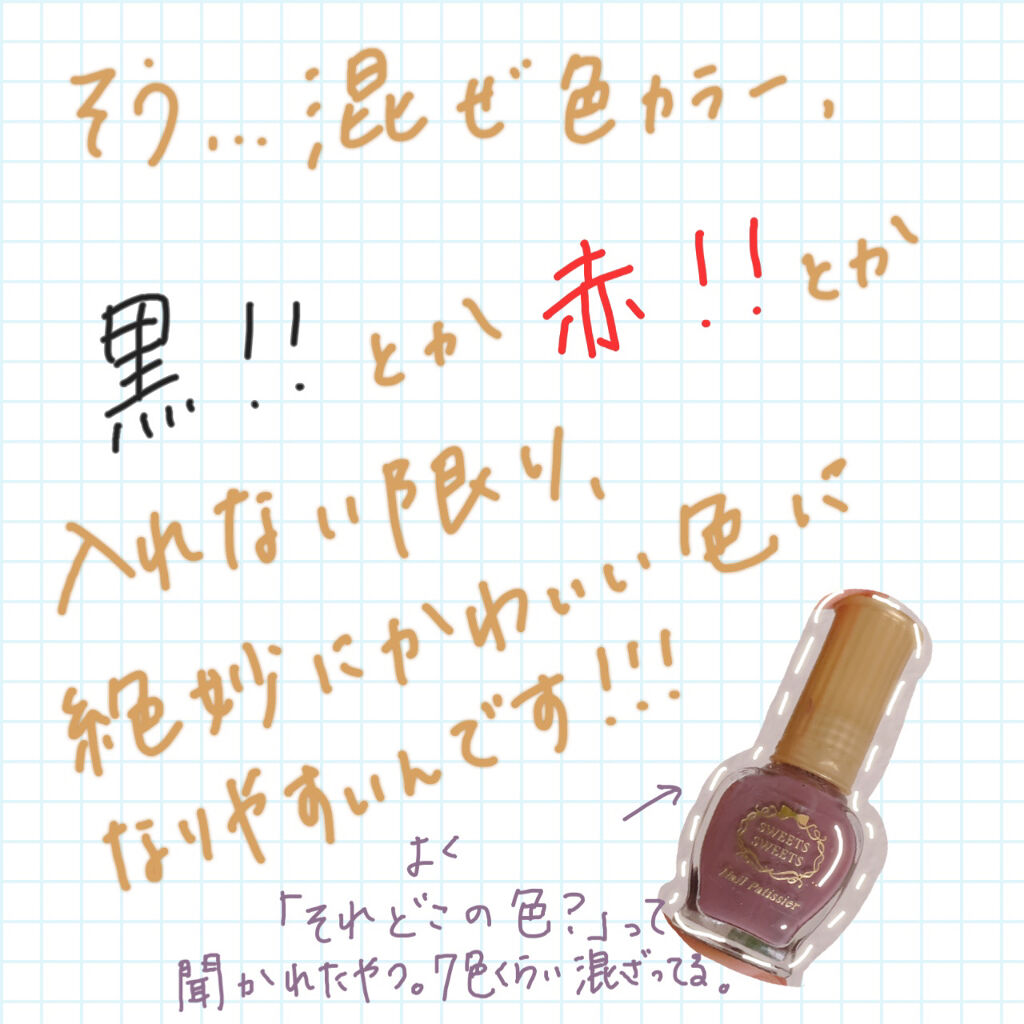 そう...混ぜ色カラー、
黒!!とか赤!!とか
入れない限り、
絶妙にかわいい色に
なりやすいんです!!!
よく
「それどこの色?」って
聞かれたやつ。7色くらい混ざってる。
SWEETS
SWEETS
Nail Patissier